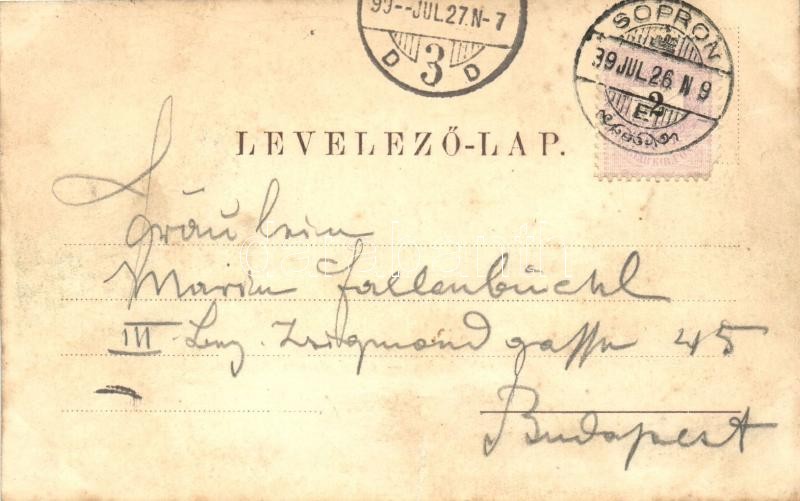 99--JUL.27.N-7
D 3 D
SOPRON
99 JUL 26 N 9
LEVELEZŐ-LAP.
Fräulein
Marie Fallenbüchl
III Bez. Zsigmondgasse 45
Budapest